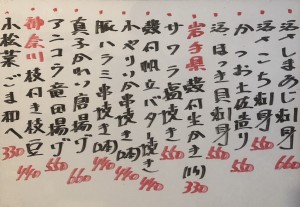 活しまあじ刺身 660
活さごち刺身 550
かつお土佐造り 550
活ほっき貝刺身 550
岩手県 殻付生かき(1ケ) 330
サワラ塩焼き 550
殻付帆立バター焼き 440
小やりいか串焼き(2本) 440
豚ハラミ串焼き(2本) 440
真子かれい唐揚げ 660
アンコウ竜田揚げ 550
神奈川 枝付き枝豆 440
小松菜ごま和へ 330